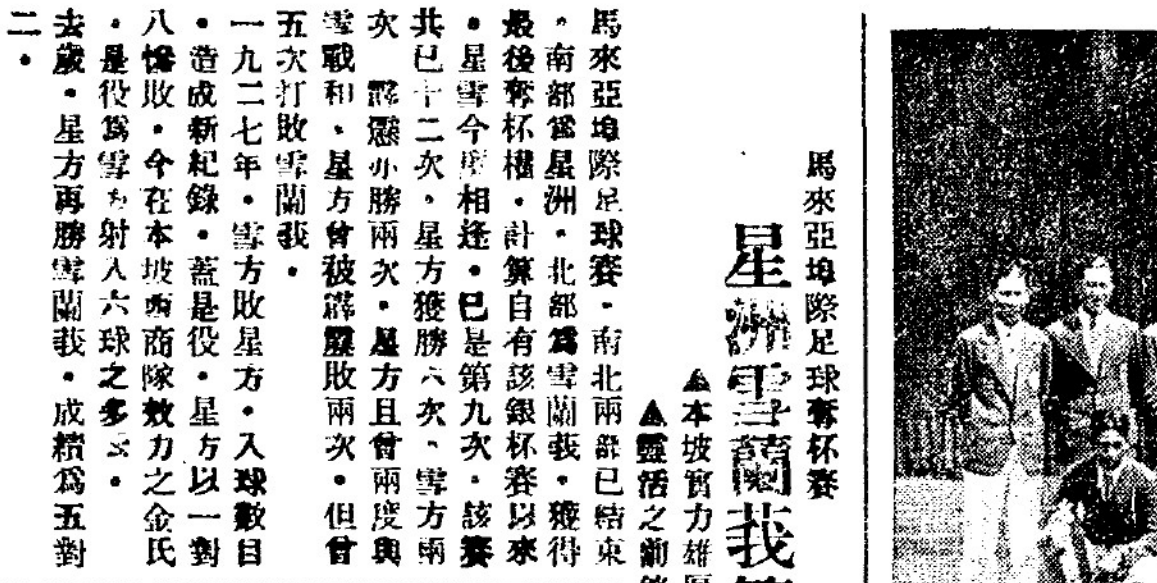 馬來亞埠際足球奪杯賽
星洲雪蘭莪
▲本坡實力雄厚
▲靈活之前鋒
馬來亞埠際足球賽・南北兩部已結束
・南部爲星洲・北部爲雪蘭莪・獲得
最後奪杯權・計算自有該銀杯賽以來
・星雪今度相逢・已是第九次・該賽
共已十二次・星方獲勝六次・雪方兩
次 霹靂亦勝兩次・星方且曾兩度與
雪戰和・星方曾被霹靂敗兩次・但曾
五次打敗雪蘭莪・
一九二七年・雪方敗星方・入球數目
・造成新紀錄・蓋是役・星方以一對
八慘敗・今在本坡西商隊效力之金氏
・是役爲雪方射入六球之多云・
去歲・星方再勝雪蘭莪・成績爲五對
二・